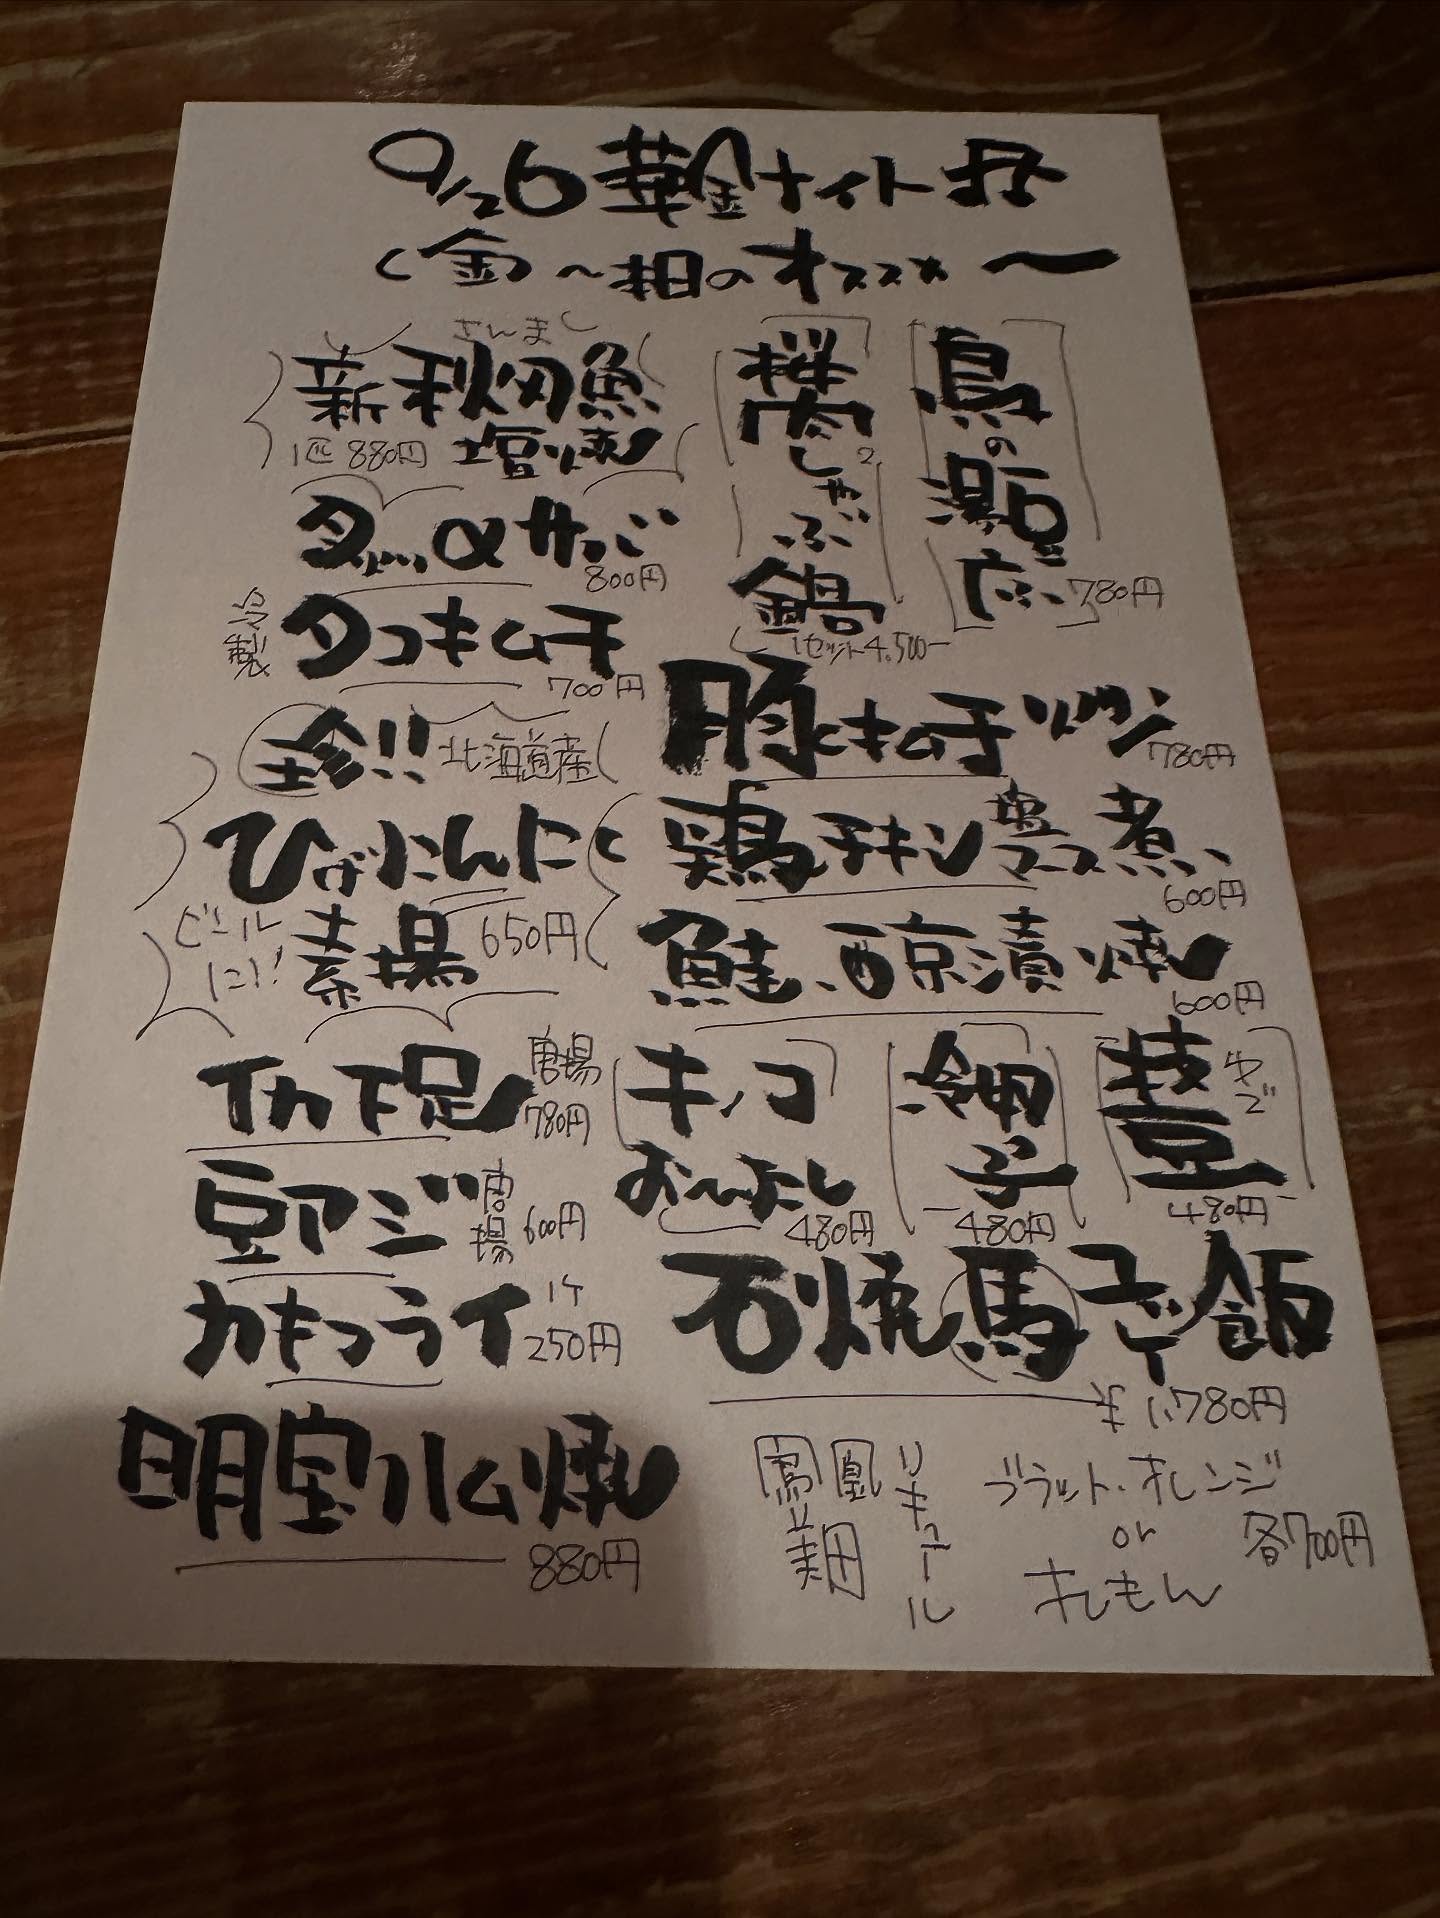 9/26 華金ナイト
(金) 〜本日のオススメ〜
さんま
新秋刀魚
1匹 880円 塩焼
サバ
800円
冷製
タコキムチ
700円
珍!! 北海道産
ひげにんにく
ビールに!! 素揚 650円
イカ下足 唐揚
780円
豆アジ 唐揚 600円
カキフライ 1ケ
250円
明宝ハム焼
880円
桜肉しゃぶ鍋
1セット4,500ー
鳥の
780円
豚キムチ
780円
鶏チキン 煮
600円
鮭、西京漬焼
600円
キノコ
おひたし
480円
冷
480円
ゆで
480円
石焼馬ユッケ飯
¥1,780円
鳳凰美田
リキュール
ブラット・オレンジ
or
れもん
各700円